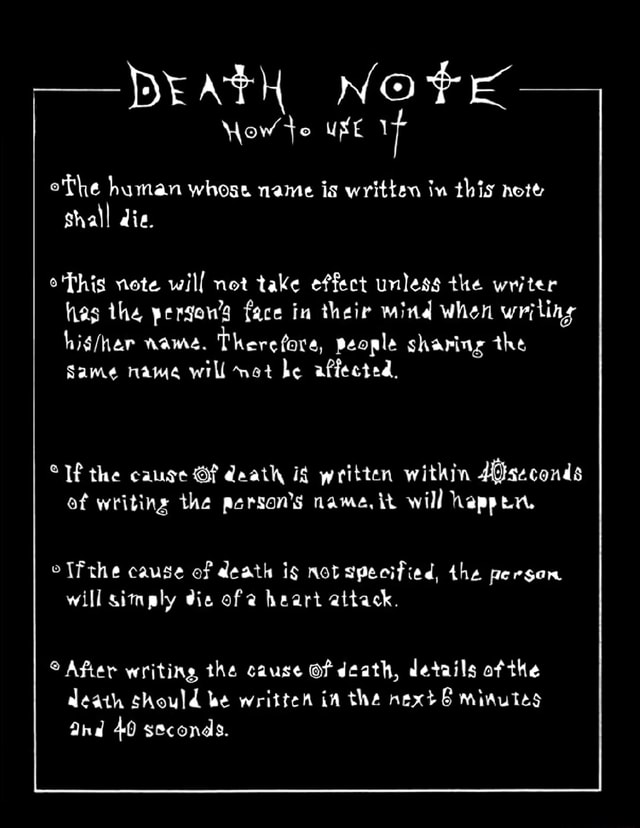 DEATH NOTE
HOW to USE It
The human whose name is written in this note
shall die.
This note will not take effect unless the writer
has the person's face in their mind when writing
his/her name. Therefore, people sharing the
same name will not be affected.
If the cause of death is written within 40 seconds
of writing the person's name, it will happen.
If the cause of death is not specified, the person
will simply die of a heart attack.
After writing the cause of death, details of the
death should be written in the next 6 minutes
and 40 seconds.